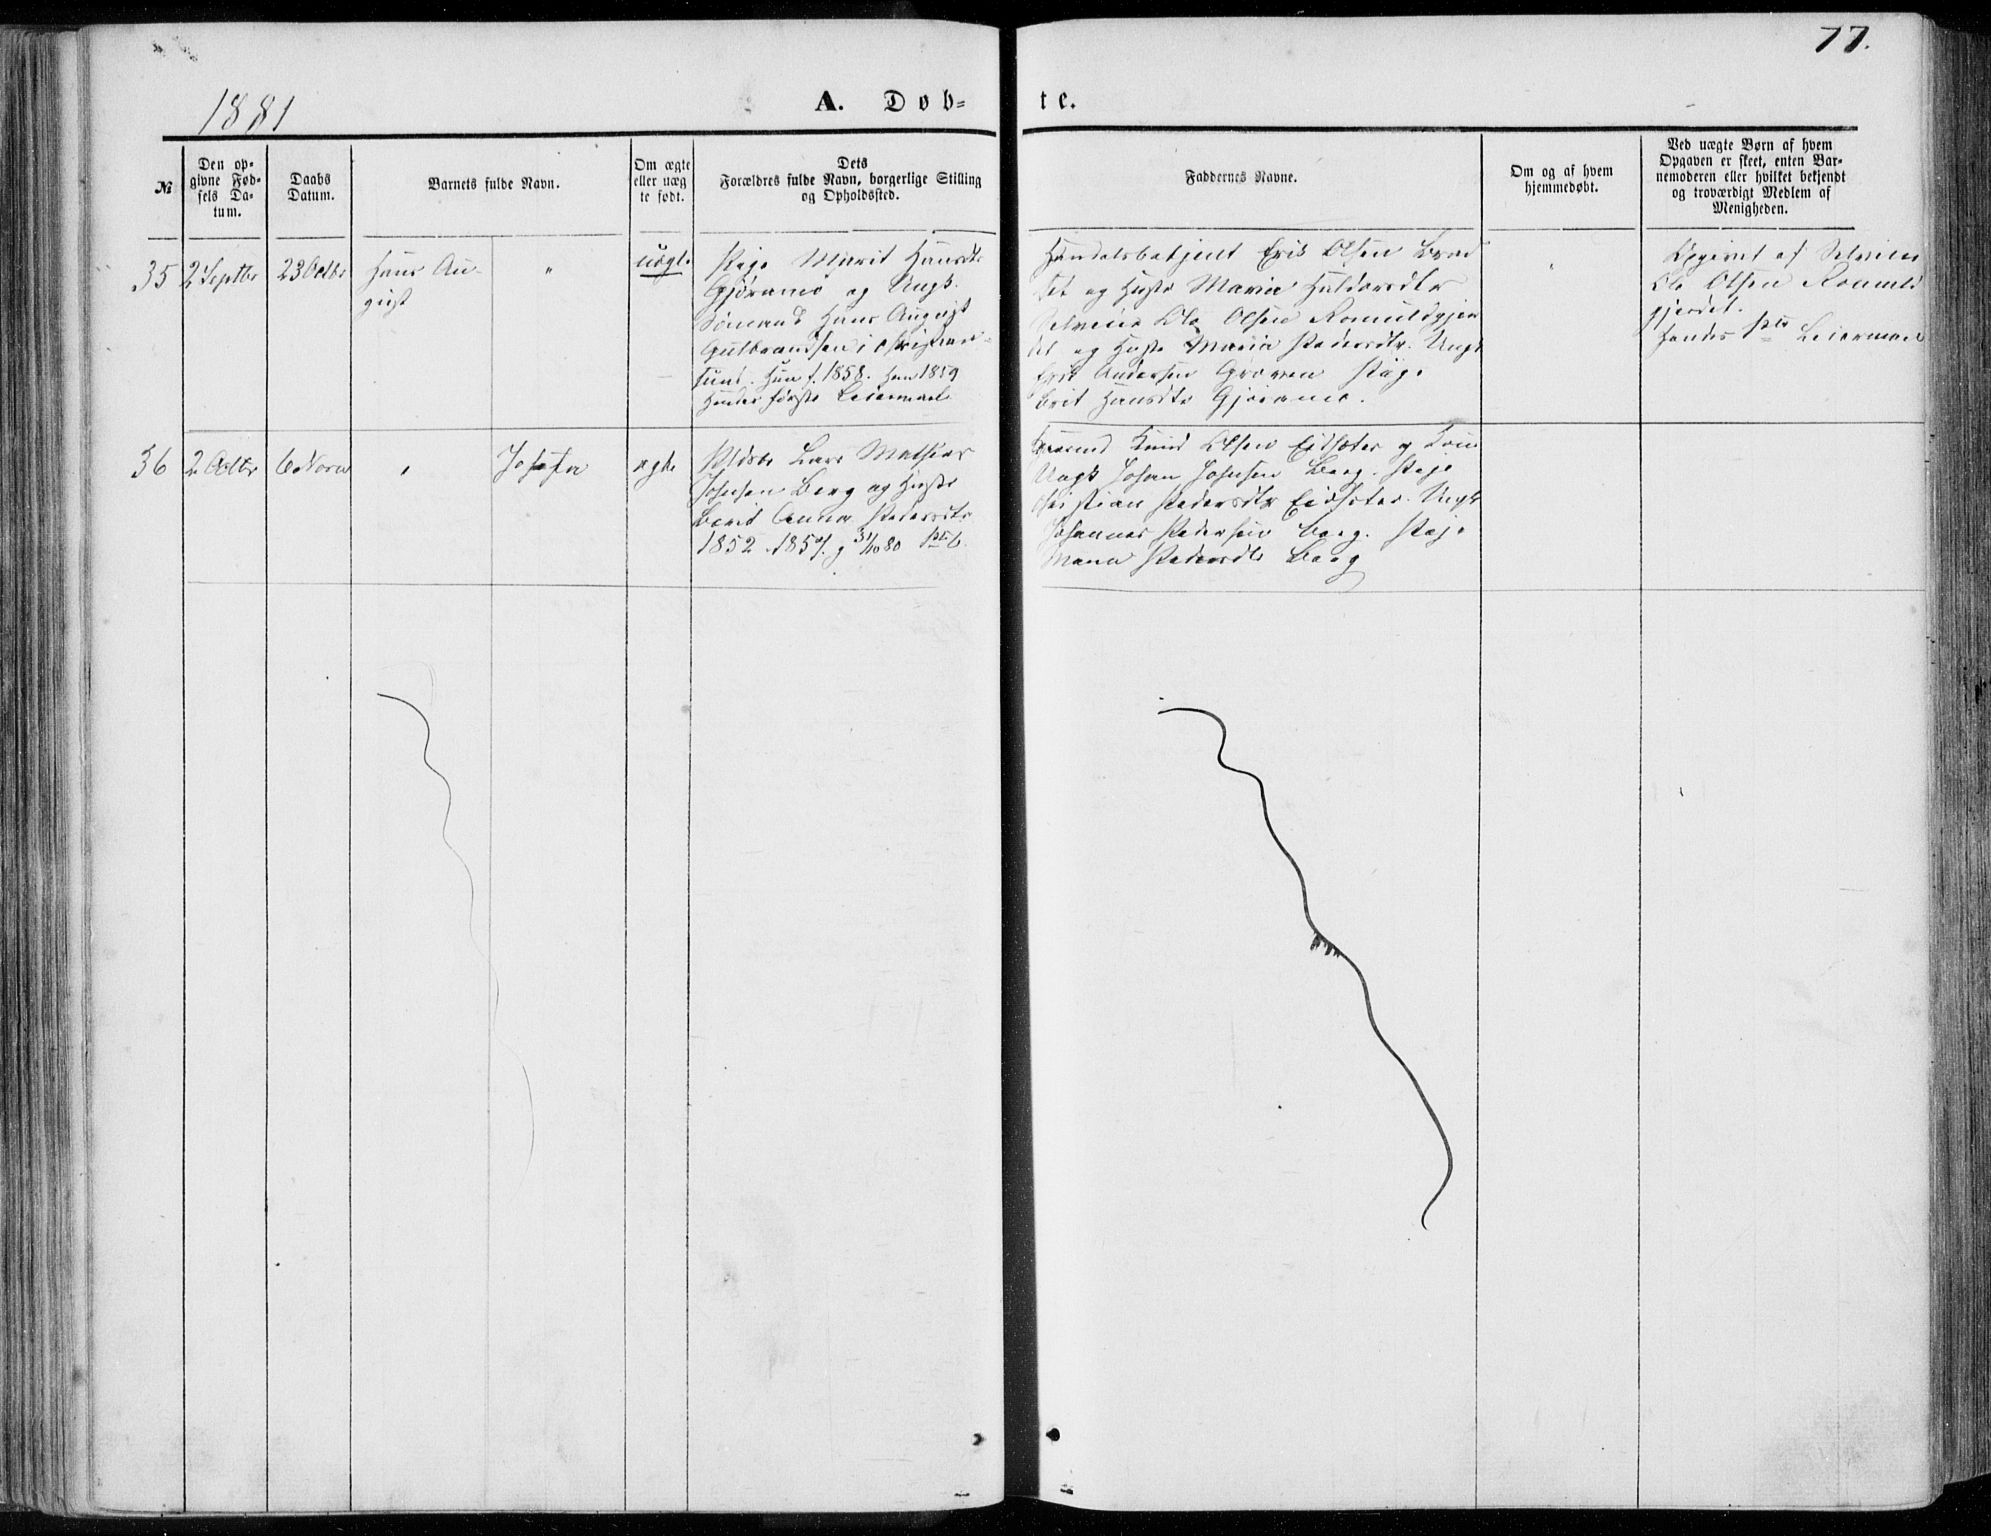 77.
1881
A. Døb=
te.
№
Den op=
givne Fød=
sels Da=
tum.
Daabs
Datum.
Barnets fulde Navn.
Om ægte
eller uæg
te født.
Dets
Forældres fulde Navn, borgerlige Stilling
og Opholdssted.
Faddernes Navne.
Om og af hvem
hjemmedøbt.
Ved uægte Børn af hvem
Opgaven er skeet, enten Bar=
nemoderen eller hvilket bekjendt
og troværdigt Medlem af
Menigheden.
35
2 Septbr
23 Octbr
Hans Au-
gust
"
uægte
Pige Marit Hansdtr
Gjøramo og Ungk.
Sømand Hans August
Gulbrandsen i Christian-
sund. Hun f. 1858. Han 1859
Hendes første Leiermaal
Handelsbetjent Erik Olsen
og Hustr Maria Haldorsdtr
Selveier Ole Olsen Romuldgjer
det og Hustr Maria Pedersdtr. Ungk
Erik Andersen Groven Pige
Brit Hansdtr Gjøramo.
"
Opgivet af Selveier
Ole Olsen Romuld
gjerdet.
Leiermaal
36
2 Octbr
6 Novbr
"
Josefa
ægte
Lars Mathias
Johnsen Berg og Hustr
Berit Anna Pedersdtr
1852 31/10 80
Knud Olsen Eidsæter og Kone
Ungk Johan Johnsen Berg. Pige
Christian Pedersdtr Eidsæter. Ungk
Johannes Pedersen Berg. Pige
Pedersdtr Berg